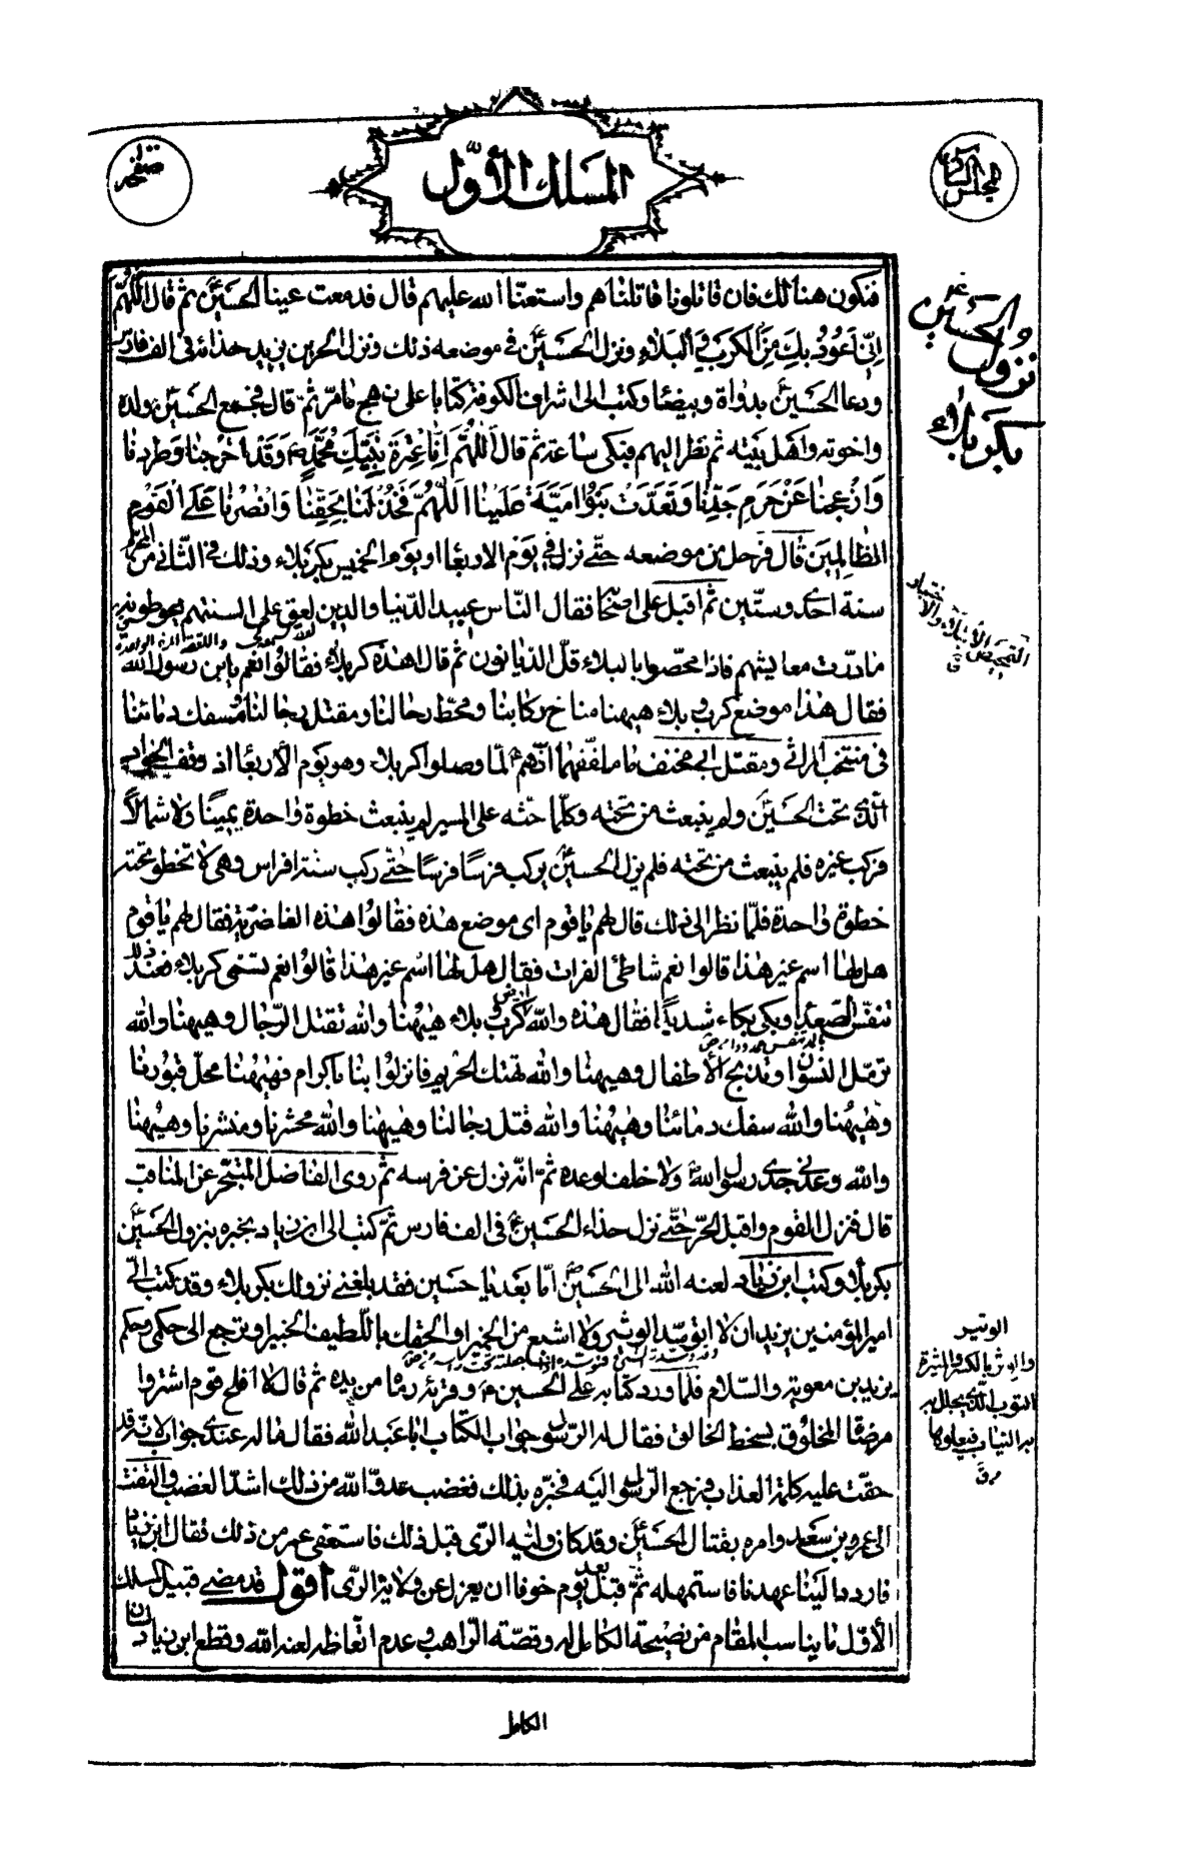 المجلس السادس
المسلك الأوّل
صفحه
فنكون هنالك فان قاتلونا قاتلناهم واستعنّا الله عليهم قال فدمعت عينا الحسينؑ ثم قال اَللّٰهُمَّ
اِنّى اَعُوذُ بِكَ مِنَ الْكَرْبِ وَ الْبَلاءِ ونزل الحسينؑ فى موضعه ذلك ونزل الحر بن يزيد حذائه فى الف فارس
ودعا الحسينؑ بدواة وبيضا وكتب الى اشراف الكوفة كتابا على نهج مامرّ ثمّ قال فجمع الحسينؑ ولده
واخوته واهل بيته ثم نظر اليهم فبكى ساعة ثم قال اَللّٰهُمَّ اِنّا عِتْرَةِ نَبِيِّكَ مُحَمَّدٍ ص وَقَدْ اُخْرِجْنا وَطُرِدْنا
وَاُزْعِجْنا عَنْ حَرَمِ جَدِّنا وَتَعَدَّتْ بَنُو اُمَيَّةَ عَلَيْنا اَللّٰهُمَّ فَخُذْ لَنا بِحَقِّنا وَانْصُرْنا عَلَى الْقَوْمِ
الظّالِمِينَ قال فرحل من موضعه حتّى نزل فى يوم الاربعا او يوم الخميس بكربلاء وذلك فى الثّانى من المحرّم
سنة احدى وستّين ثم اقبل على اصحابه فقال النّاس عبيد الدّنيا والدين لعق على السنتهم يحوطونه
مادرّت معايشهم فاذا محّصوا بالبلاء قلّ الديّانون ثم قال اهذه كربلاء فقالوا نعم يابن رسول الله
فقال هذا موضع كرب و بلاء هيهنا مناخ ركابنا ومحطّ رحالنا ومقتل رجالنا ومسفك دمائنا
فى منتخب المراثى ومقتل ابى مخنف ما ملفّقهما انّهمؑ لمّا وصلوا كربلاء وهو يوم الأربعا اذ وقف الجواد
الّذى تحت الحسينؑ ولم ينبعث من تحته وكلّما حثّه على المسير لم ينبعث خطوة واحدة يمينًا ولا شمالًا
فركب غيره فلم ينبعث من تحته فلم يزل الحسينؑ يركب فرسًا فرسًا حتّى ركب ستة افراس وهى لا تخطو تحته
خطوة واحدة فلمّا نظر الى ذلك قال لهم يا قوم اى موضع هذه فقالوا هذه الغاضرية فقال لهم يا قوم
هل لها اسم غير هذا قالوا نعم شاطئ الفرات فقال هل لها اسم غير هذا قالوا نعم تسمّى كربلاء فعند ذلك
تنفّس الصّعداء وبكى بكاء شديدًا فقال هذه والله ارض كرب و بلاء هيهنا والله تقتل الرّجال وهيهنا والله
ترمّل النسوان وتذبح الأطفال وهيهنا والله تهتك الحريم فانزلوا بنا ياكرام فهيهنا محلّ قبورنا
وهيهنا والله سفك دمائنا وهيهنا والله قتل رجالنا وهيهنا والله محشرنا ومنشرنا وهيهنا
والله وعدنى جدى رسول الله ولا خلف لوعده ثمّ انّه نزل عن فرسه ثم روى الفاضل المتبحّر عن المناقب
قال فنزل القوم واقبل الحرّ حتّى نزل حذاء الحسينؑ فى الف فارس ثمّ كتب الى ابن زياد يخبره بنزول الحسينؑ
بكربلا وكتب ابن زياد لعنه الله الى الحسينؑ امّا بعد يا حسين فقد بلغنى نزولك بكربلاء وقد كتب الىّ
امير المؤمنين يزيد ان لا اتوسّد الوثير ولا اشبع من الخمير او الحقك باللّطيف الخبير او ترجع الى حكمى وحكم
يزيد بن معوية والسّلام فلمّا ورد كتابه على الحسينؑ وقرئه رماه من يده ثم قال لا افلح قوم اشتروا
مرضاة المخلوق بسخط الخالق فقال له الرّسول جواب الكتاب ابا عبد الله فقال ماله عندى جواب لانّه قد
حقّت عليه كلمة العذاب فرجع الرّسول اليه فخبّره بذلك فغضب عدوّ الله من ذلك اشدّ الغضب والتفت
الى عمرو بن سعد وامره بقتال الحسينؑ وقد كان ولّيه الرّى قبل ذلك فاستعفى عمر من ذلك فقال ابن زياد
فاردد الينا عهدنا فاستمهله ثمّ قبل بعد يوم خوفا ان يعزل عن ولاية الرّى اقول قد مضى قبيل المسلك
الأوّل ما يناسب المقام من نصيحة الكامل له وقصّة الرّاهب و عدم اتّعاظه لعنه الله وقطع ابن زياد لسان
الكامل
نزول الحسينؑ
بكربلاء
التمحيص الأبتلاء والأختبار
ق
الوثير
والوثر بالكسر والميثرة
الثوب الّذى يجلل به
به الثياب فيعلوها
ق